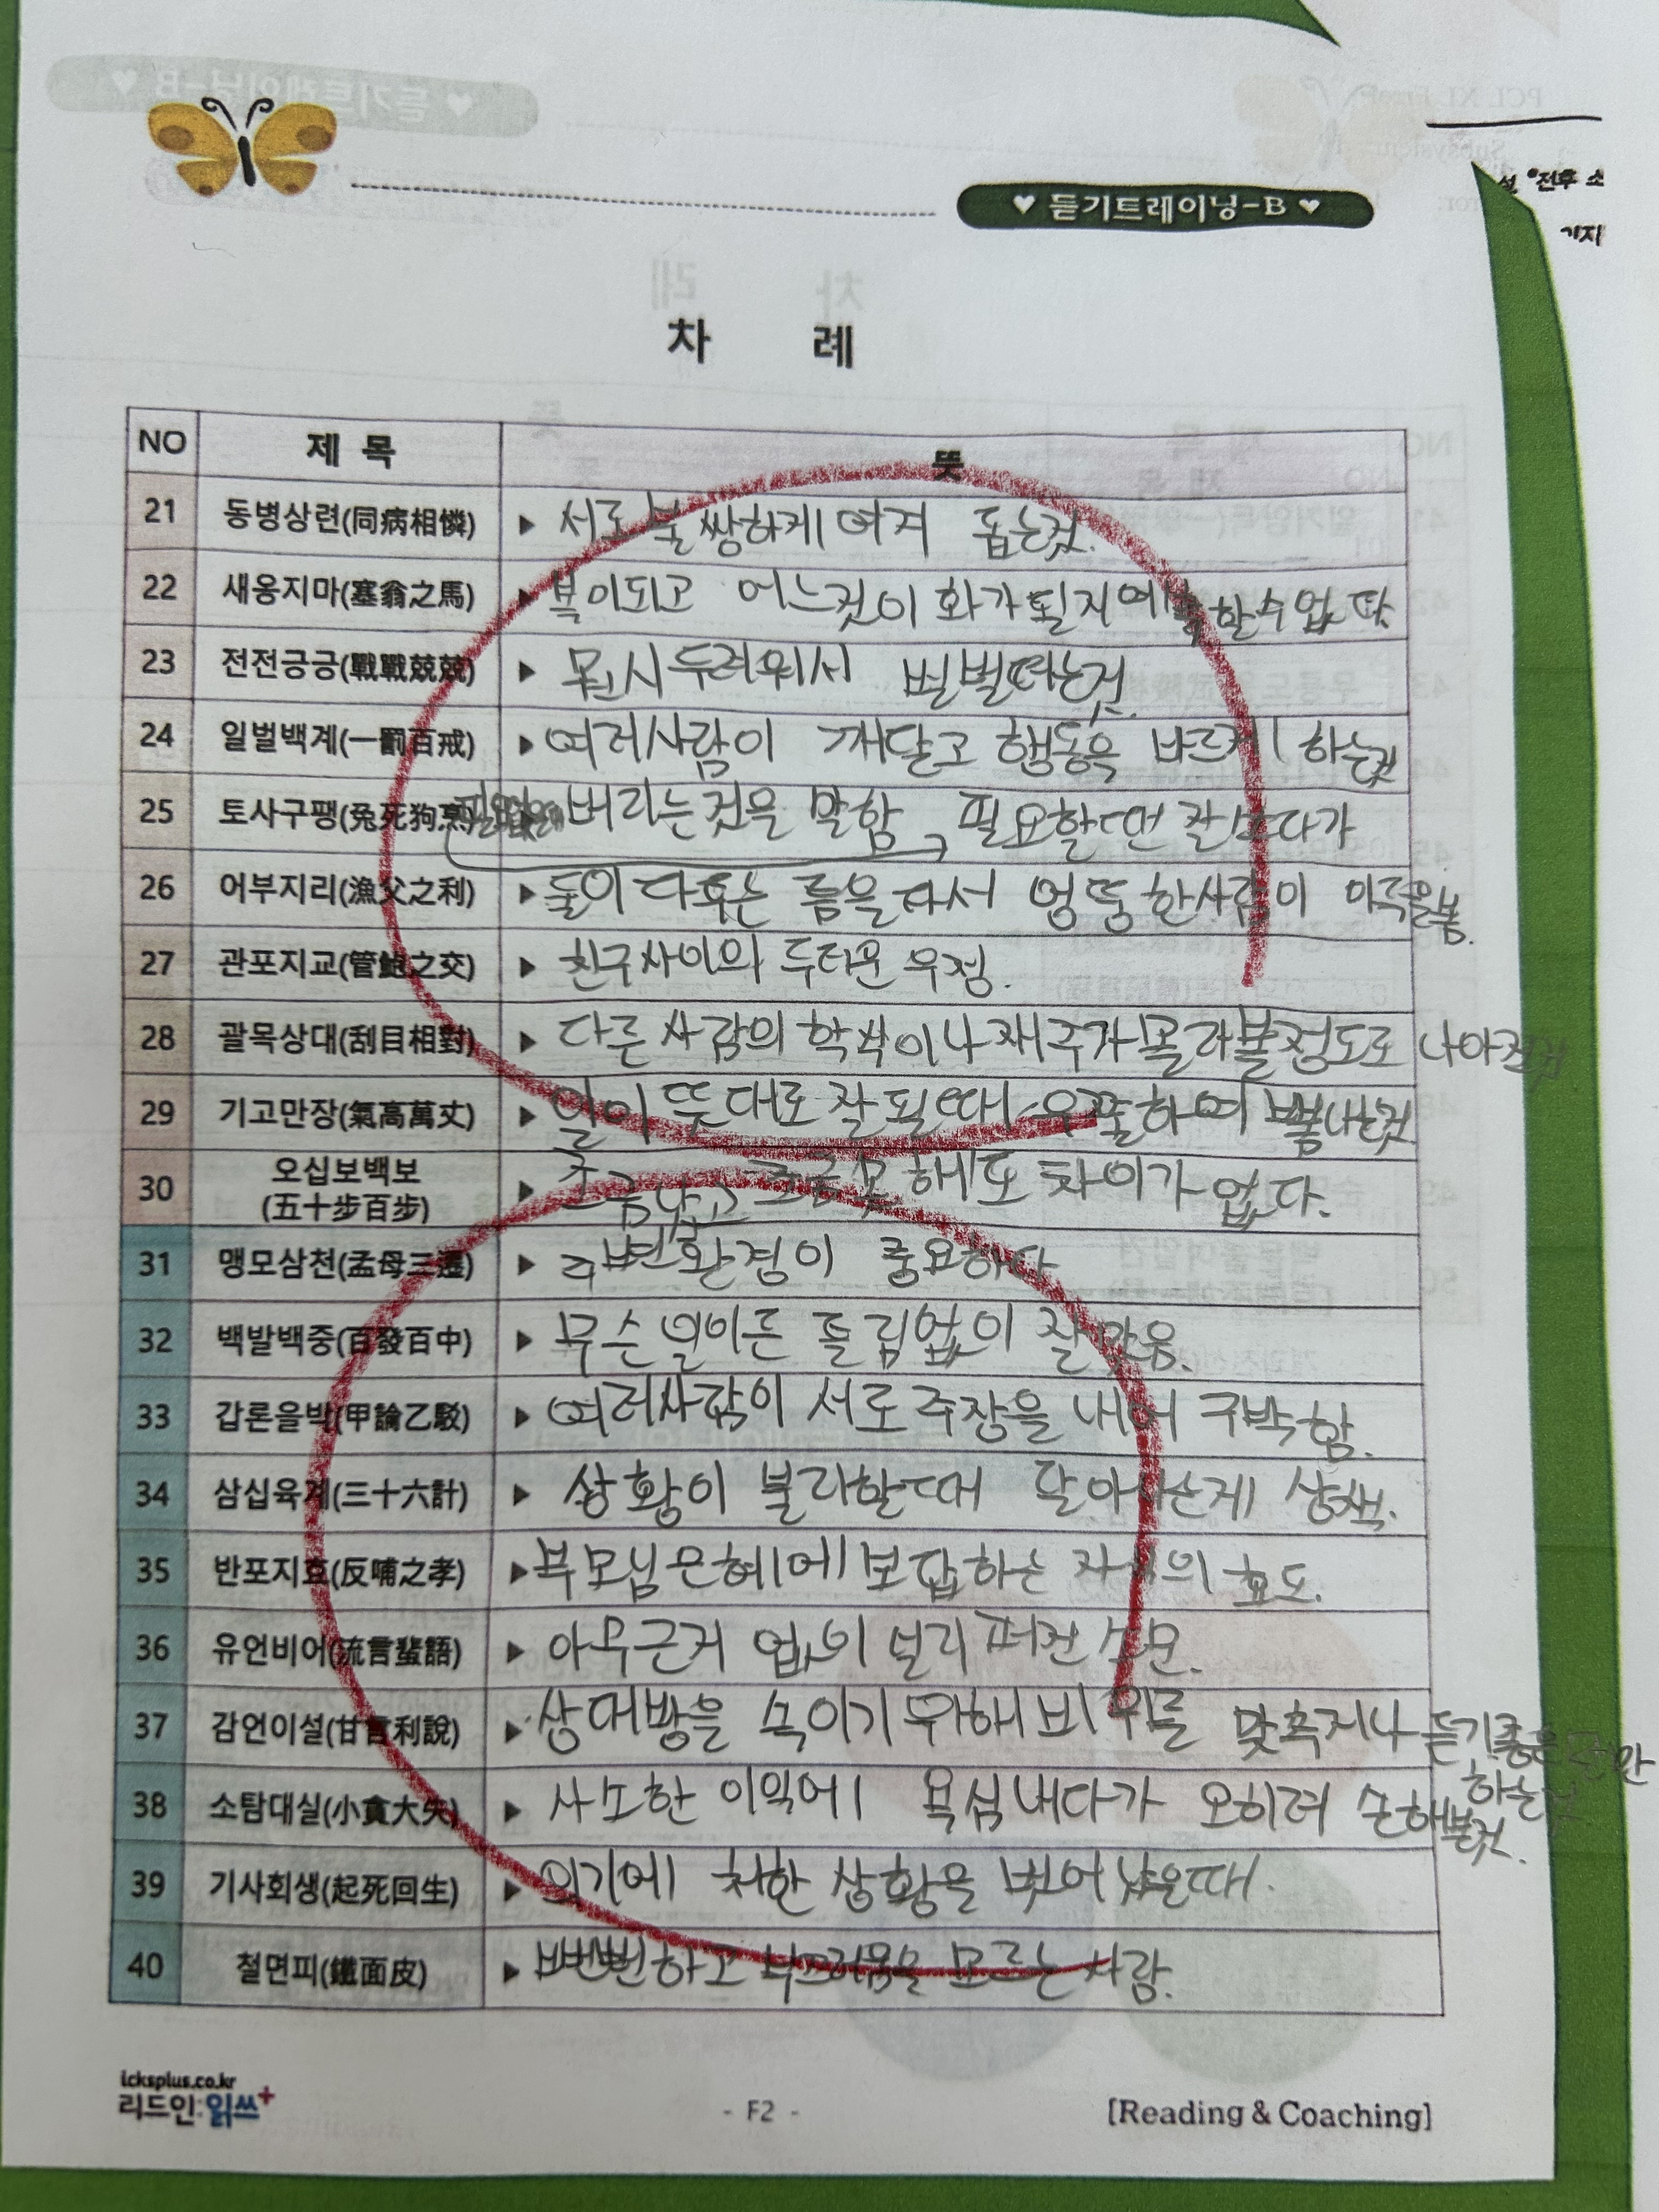 ♥ 듣기트레이닝-B ♥
전후 소
차 례
NO 제 목 뜻
21 동병상련(同病相憐) ▶ 서로 불쌍하게 여겨 돕는것.
22 새옹지마(塞翁之馬) ▶ 복이되고 어느것이 화가될지 예측할수없다
23 전전긍긍(戰戰兢兢) ▶ 몹시 두려워서 벌벌떠는것.
24 일벌백계(一罰百戒) ▶ 여러사람이 깨달고 행동을 바르게 하는것
25 토사구팽(兔死狗烹) 버리는것을 말함 필요할땐 잘쓰다가
26 어부지리(漁父之利) ▶ 둘이 다투는 틈을 타서 엉뚱한사람이 이득을봄.
27 관포지교(管鮑之交) ▶ 친구사이의 두터운 우정.
28 괄목상대(刮目相對) ▶ 다른 사람의 학식이나 재주가 몰라볼정도로 나아진것
29 기고만장(氣高萬丈) ▶ 일이 뜻대로 잘 될때 우쭐하여 뽐내는것
30 오십보백보
(五十步百步) ▶ 조금낫고 조금못해도 차이가 없다.
31 맹모삼천(孟母三遷) ▶ 주변환경이 중요하다
32 백발백중(百發百中) ▶ 무슨 일이든 틀림없이 잘맞음.
33 갑론을박(甲論乙駁) ▶ 여러사람이 서로 주장을 내어 구박함.
34 삼십육계(三十六計) ▶ 상황이 불리할때 달아나는게 상책.
35 반포지효(反哺之孝) ▶ 부모님 은혜에 보답하는 자식의 효도.
36 유언비어(流言蜚語) ▶ 아무근거 없이 널리 퍼진 소문.
37 감언이설(甘言利說) ▶ 상대방을 속이기 위해 비위를 맞추거나 듣기좋은 말만 하는것
38 소탐대실(小貪大失) ▶ 사소한 이익에 욕심내다가 오히려 손해볼것.
39 기사회생(起死回生) ▶ 위기에 처한 상황을 벗어났을때.
40 철면피(鐵面皮) ▶ 뻔뻔하고 부끄러움을 모르는 사람.
lcksplus.co.kr
리드인 읽쓰+
- F2 -
[Reading & Coaching]